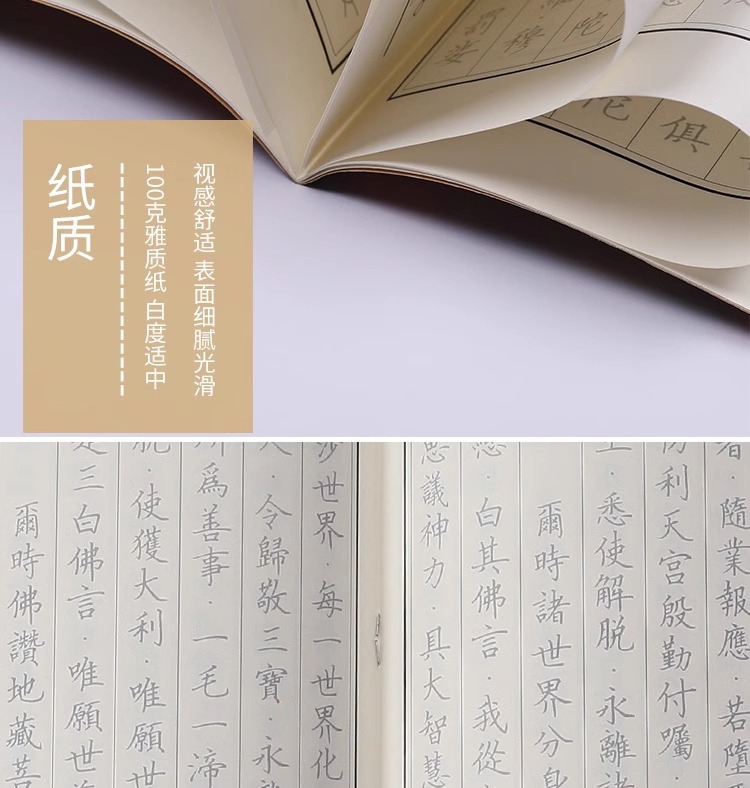 陀
穆
婆
俱
陀
纸质
视感舒适 表面细腻光滑
100克雅质纸 白度适中
隨業報應·若墮
利天宮殷勤付囑·
·悉使解脫·永離諸
爾時諸世界分身
·白其佛言·我從
議神力·具大智慧
沙世界·每一世界化
·令歸敬三寶·永
為善事·一毛一渧
脫·使獲大利·唯願世
三白佛言·唯願世
爾時佛讚地藏菩